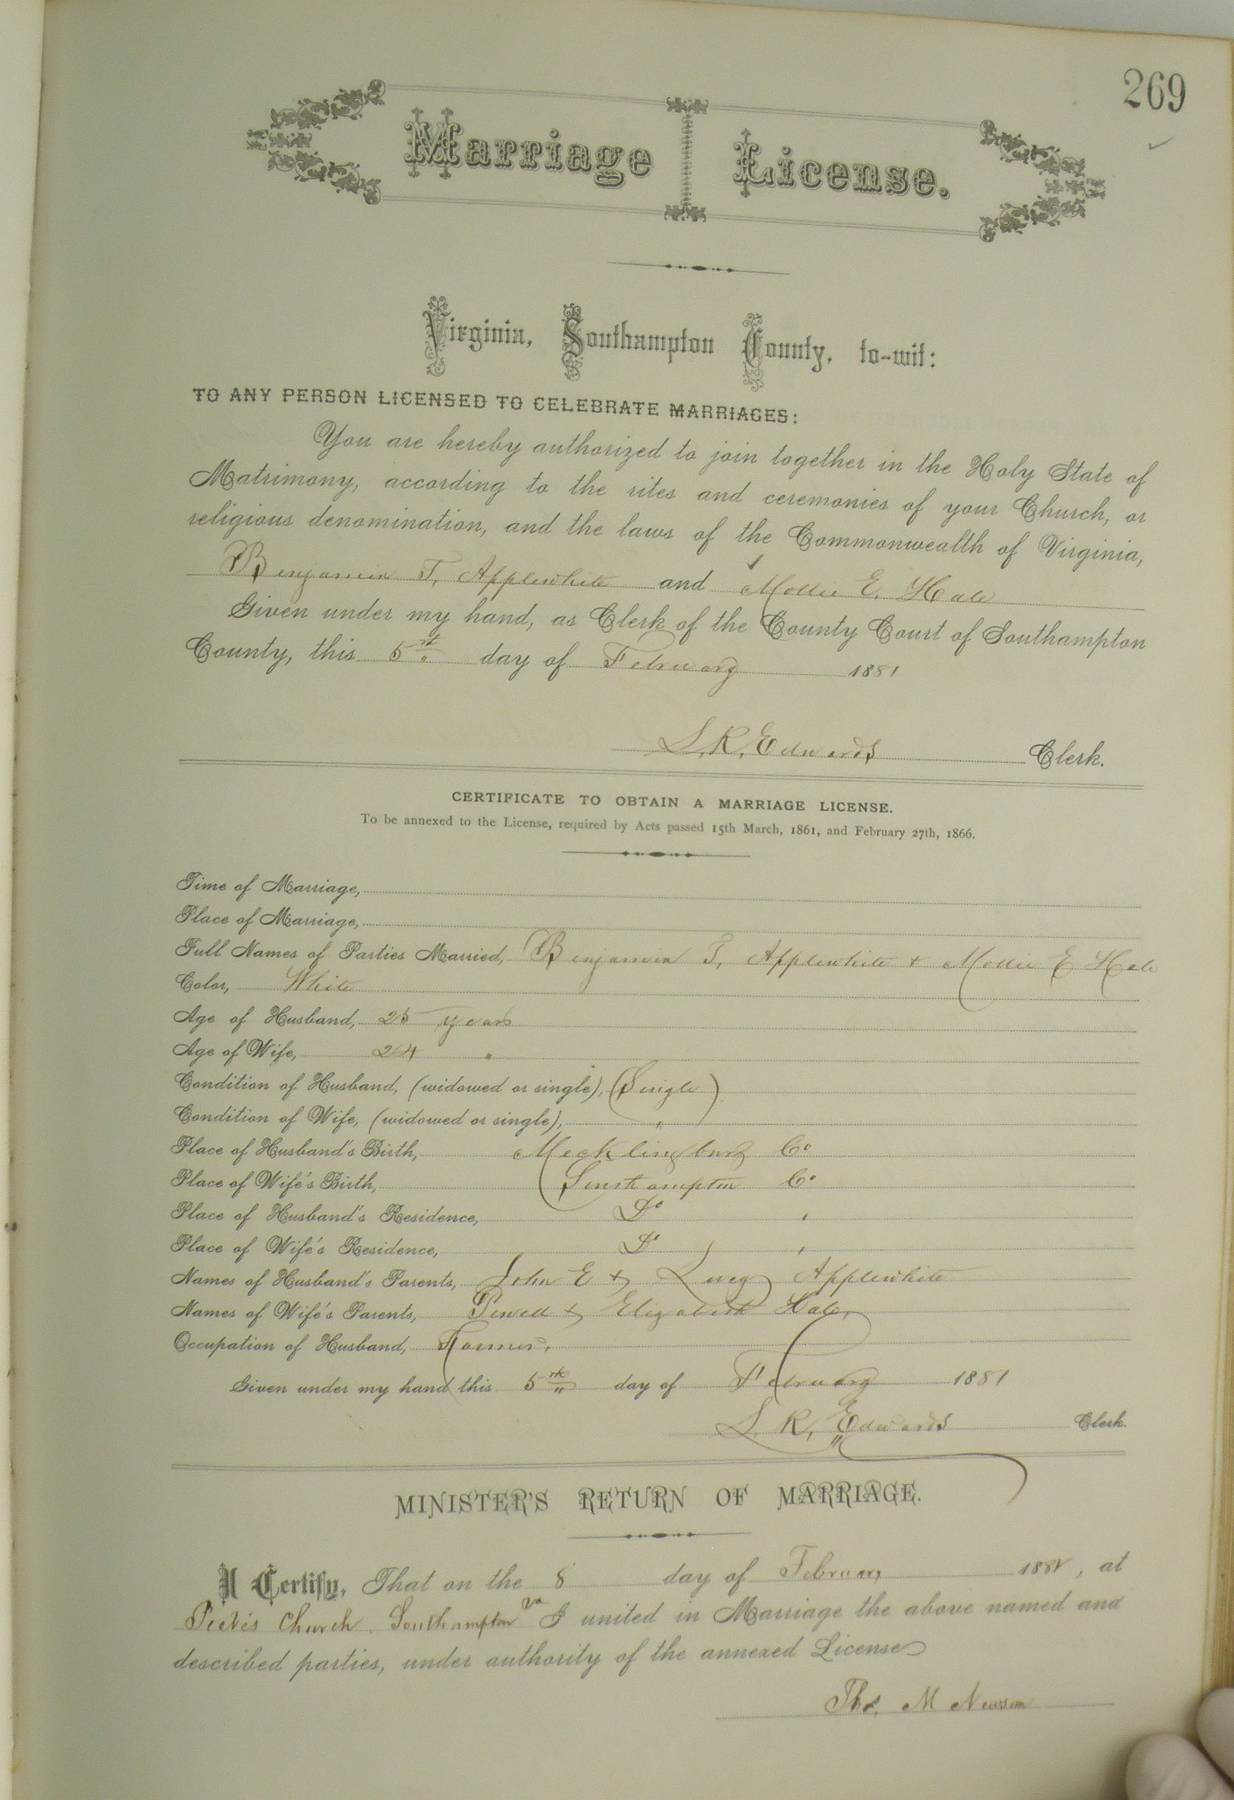 269
Marriage License.
Virginia, Southampton County, to-wit:
TO ANY PERSON LICENSED TO CELEBRATE MARRIAGES:
You are hereby authorized to join together in the Holy State of
Matrimony, according to the rites and ceremonies of your Church, or
religious denomination, and the laws of the Commonwealth of Virginia,
Benjamin T. Applewhite and Mollie E. Hale
Given under my hand, as Clerk of the County Court of Southampton
County, this 5th day of February 1881
L. R. Edwards Clerk.
CERTIFICATE TO OBTAIN A MARRIAGE LICENSE.
To be annexed to the License, required by Acts passed 15th March, 1861, and February 27th, 1866.
Time of Marriage,
Place of Marriage,
Full Names of Parties Married, Benjamin T. Applewhite + Mollie E Hale
Color, White
Age of Husband, 25 years
Age of Wife, 24 "
Condition of Husband, (widowed or single), (Single)
Condition of Wife, (widowed or single), "
Place of Husband's Birth, Mecklinburg Co
Place of Wife's Birth, Southampton Co
Place of Husband's Residence, Do "
Place of Wife's Residence, Do "
Names of Husband's Parents, John E + Lucy Applewhite
Names of Wife's Parents, + Elizabeth Hale
Occupation of Husband, Farmer.
Given under my hand this 5th day of February 1881
L. R. Edwards Clerk.
MINISTER'S RETURN OF MARRIAGE.
I Certify, That on the 8 day of February 1881, at
Church Southampton Va I united in Marriage the above named and
described parties, under authority of the annexed License
Thos. M Newsom